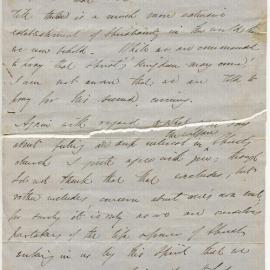 till there is a much more extensive
establishment of Christianity in the world than
we now behold. While we are commanded
to pray that Christ's Kingdom may come
I am not aware that we are told to
pray for his second coming.
Again with regard to what you say
about feeling an interest in
church I quite agree with you; though
I do not think that that excludes, but
rather includes, concern about one's own soul,
for surely it is only as we are ourselves
partakers of the life & power of
in us by his Spirit that we